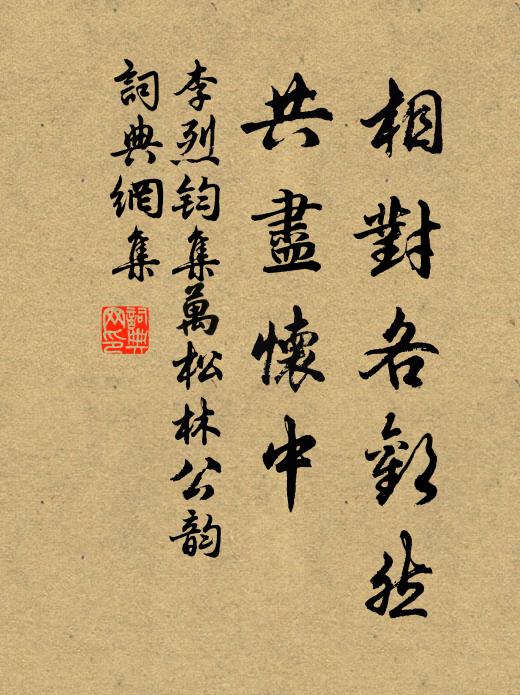 相對各歡然
共盡懷中
李烈鈞集萬松林公韵
詞典網集
詞典网印